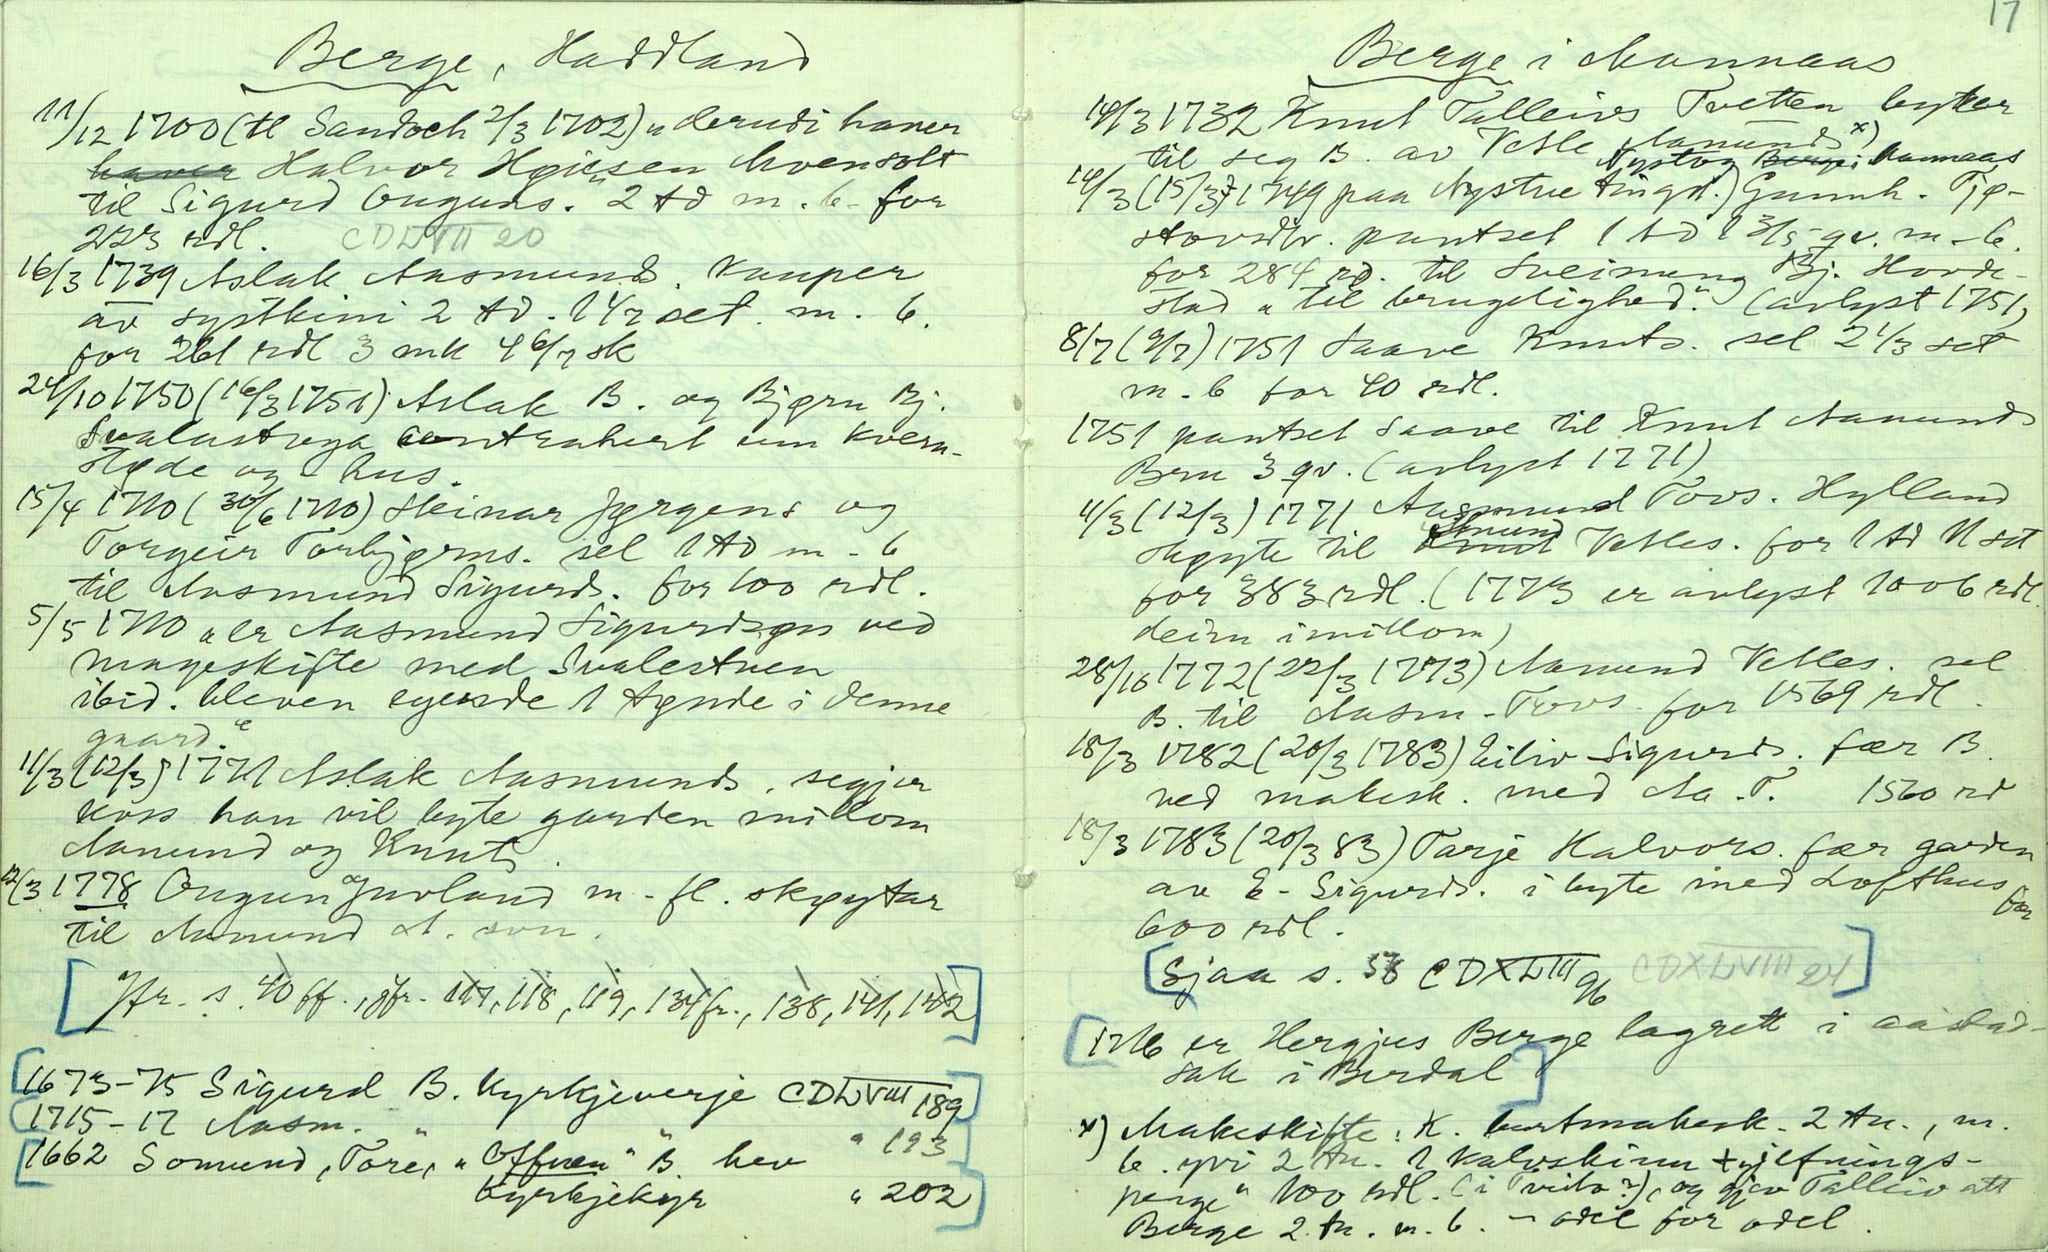 Berge, Haddland
11/12 1700 (tl Sandoch 2/3 1702) „ derudi haver
haver Halvor Hgiesen Hvensolt
til Sigurd Ouguns. 2 td m. b. for
223 rdl. CDLVIII 20
16/3 1739 Aslak Aasmunds. kauper
av systkini 2 td. 14 7 set. m. b.
for 261 rdl 3 mk 4 6/7 sk
24/10 1750 (16/3 1751) Aslak B. og Bjørn Bj.
Svalastoga contrahert um kvern-
støde og - hus.
15/4 1770 (30/6 1770) Steinar Jørgens og
Torgeir Torbjørns. sel 1 td m - b
til Aasmund Sigurds. for 100 rdl.
5/5 1770 „er Aasmund Sigurdsøn ved
mageskifte med Svalestuen
ibid. bleven eyende 1 tønde i denne
gaard.“
11/3 (12/3) 1771 Aslak Aasmunds. segjer
koss han vil byte garden millom
Aanund og Knut
12/3 1778 Ougun Juvland m. fl. skøytar
til Aamund A. son.
Jfr. s. 40 ff., jfr. 117, 118, 119, 134 fr., 138, 141, 142
1673-75 Sigurd B. kyrkjeverje CDLVIII 189
1715-17 Aasm. „ „ „ 193
1662 Somund, Tore, „Offuen“ B. hev
kyrkjekyr „ 202
17
Berge i Mannaas
14/3 1732 Knut Talleivs Tvetten byter
til seg B. av Vetle Aanunds x)
Nystog Berge i Mannaas
14/3 (15/3) 1749 paa Nystue tingst.) Gunnh. Tjø-
stovsdtr. pantset 1 td 1 3/5 qv. m - b.
for 284 rd. til Sveinung Bj. Hovde-
stad „til brugelighed“. (avlyst 1751)
8/7 (9/7) 1751 Saave Knuts. sel 2 1/3 set
m. b for 40 rdl.
1751 pantset Saave til Knut Aanunds
Bru 3 qv. (avlyst 1771)
11/3 (12/3) 1771 Aasmund Tovs. Hylland
skøyte til Aanund Vetles. for 1 td 11 set
for 383 rdl. (1773 er avlyst 1006 rdl.
deim imillom)
28/10 1772 (22/3 1773) Aanund Vetles. sel
B. til Aasm. Tovs. for 1569 rdl.
18/3 1782 (20/3 1783) Eiliv Sigurds. fær B.
ved makesk. med Aa. T. 1560 rd
18/3 1783 (20/3 83) Tarje Halvors. fær garden
av E. Sigurds. i byte med Lofthus for
600 rdl.
Sjaa s. 58 CDXLIII 96 CDXLVIII 24
1716 er Hergjus Berge lagrett i aastad-
sak i Berdal
x) Makeskifte: K. burtmakesk. 2 tn., m.
b. yvi 2 tn. 1 kalvskinn + „jefnings-
penge“ 100 rdl. (i Tveito?), og gjev Talleiv att
Berge 2 tn. m. b. - odel for odel.